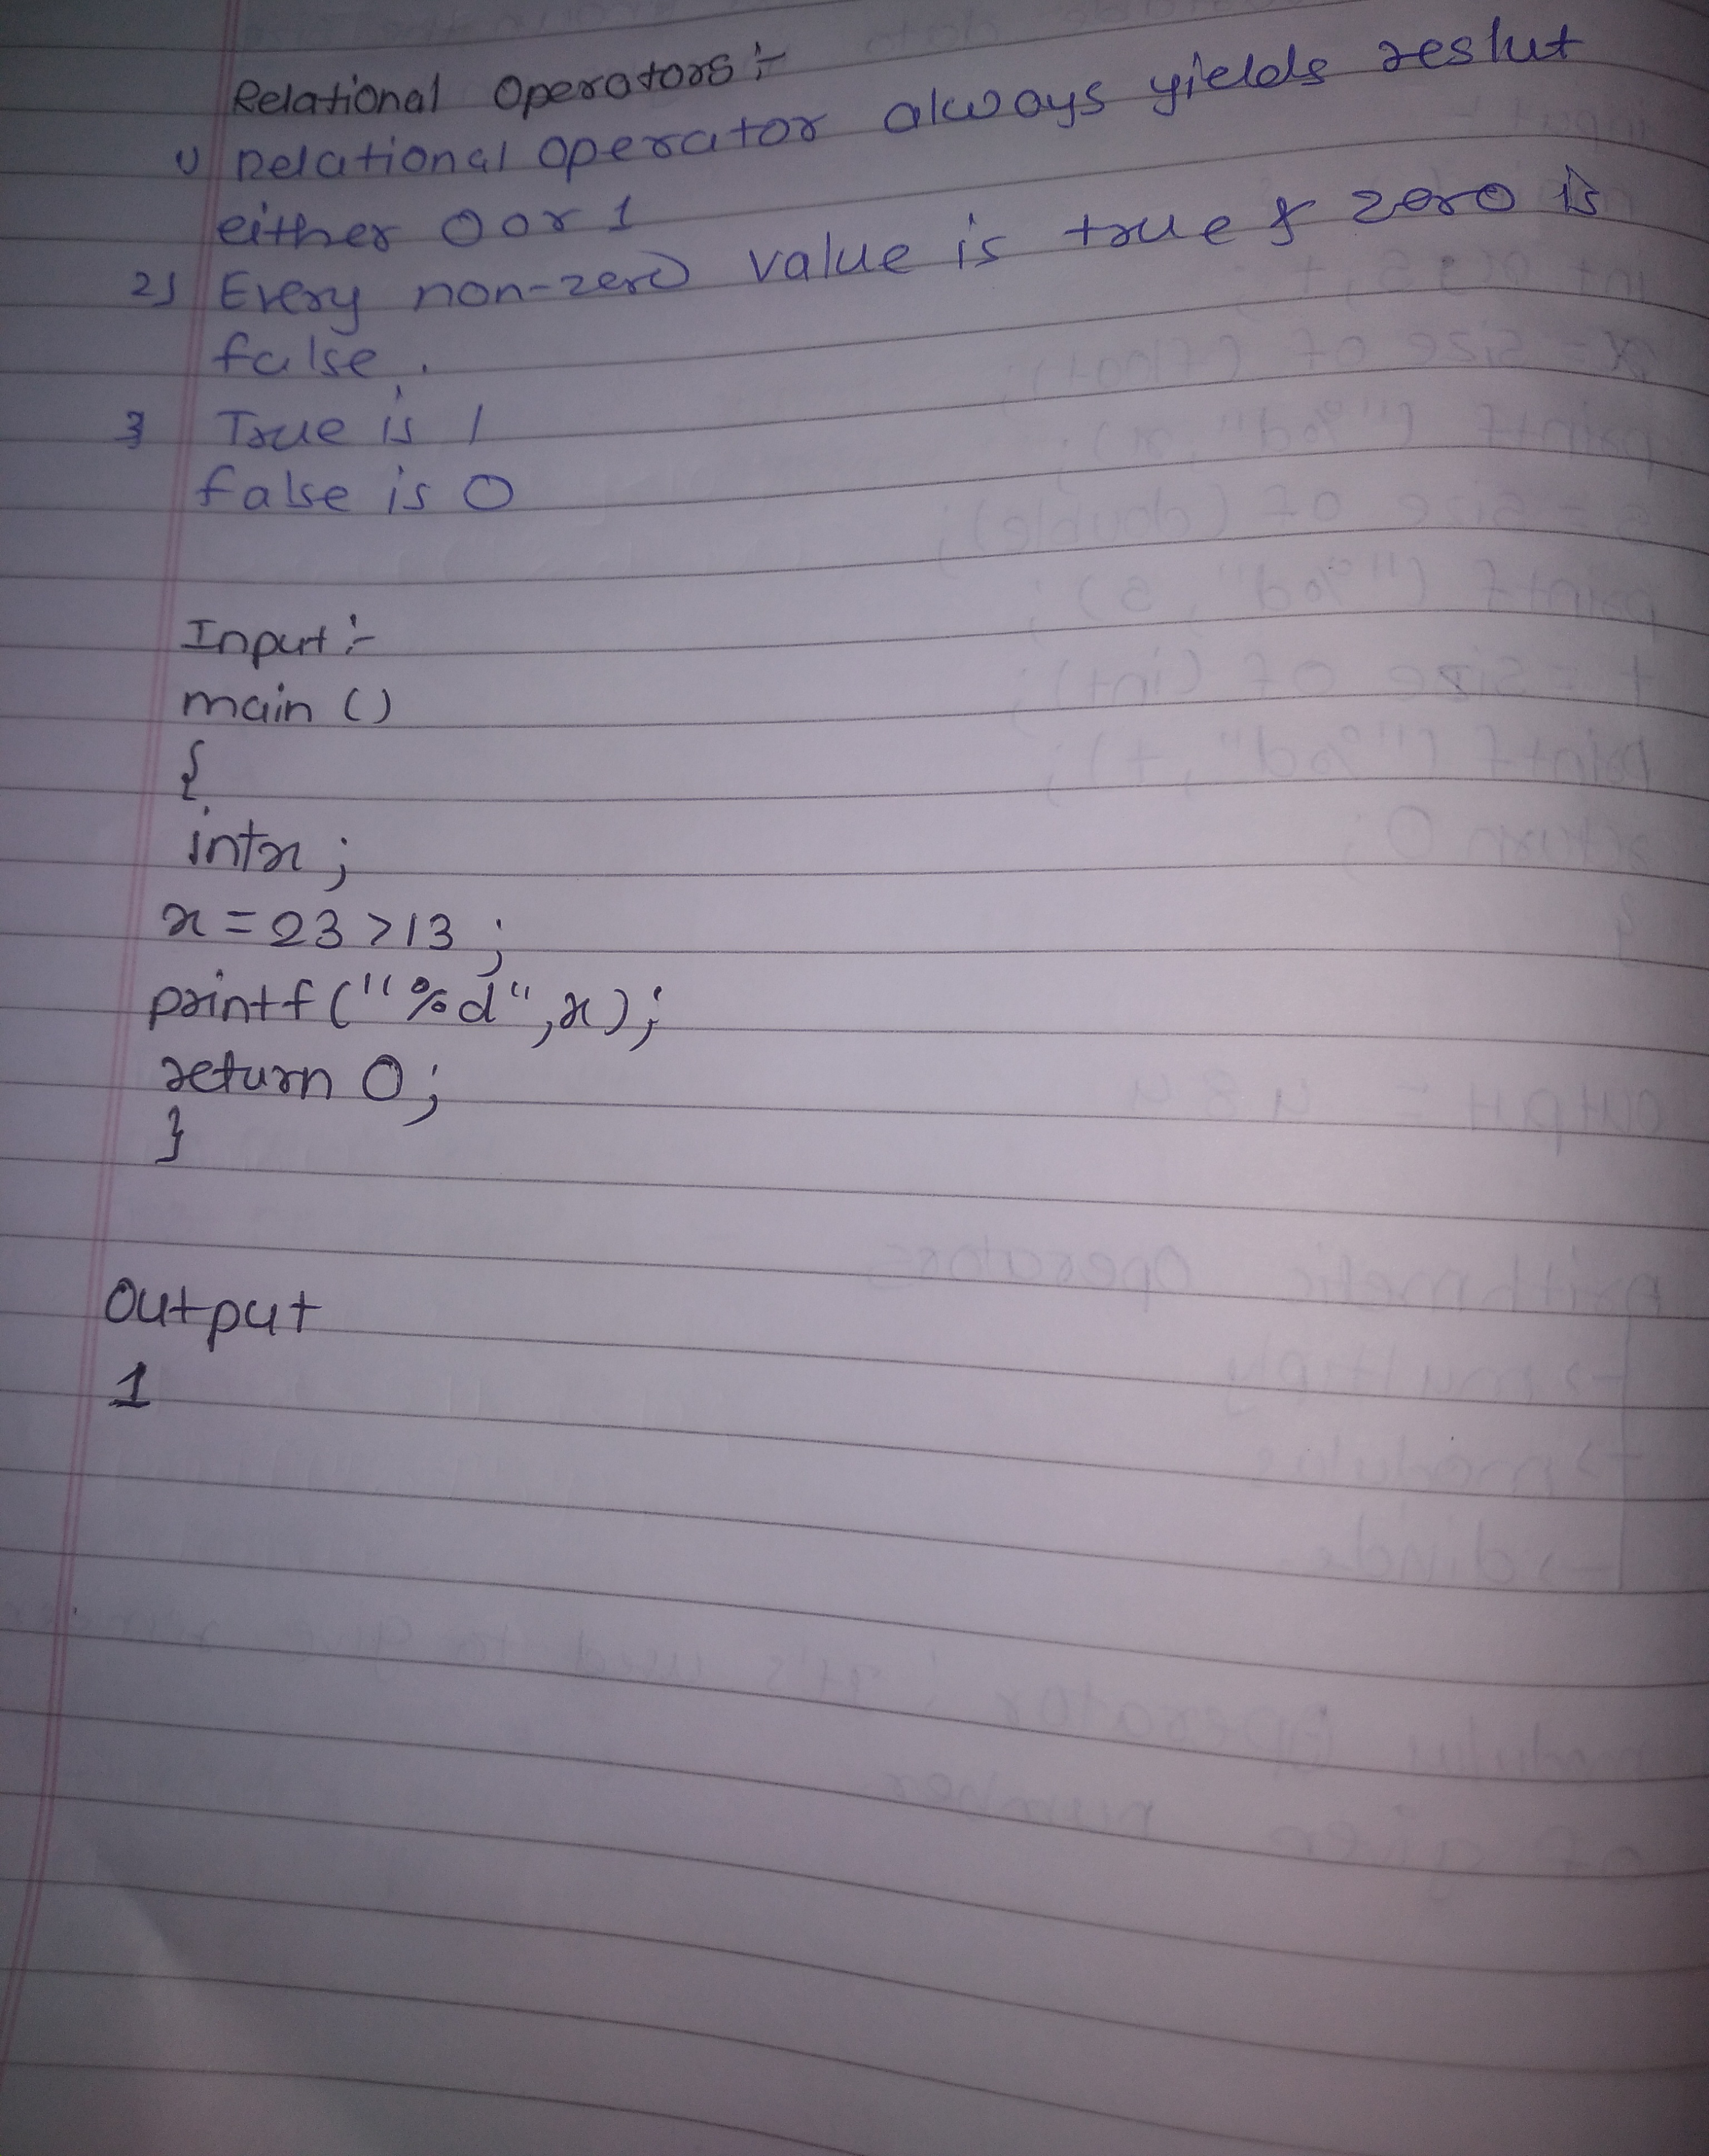 Relational Operators :-
1) Relational operator always yields reslut
either 0 or 1
2) Every non-zero value is true & zero is
false.
3 True is 1
false is 0
Input :-
main ()
{
int x ;
x = 23 > 13 ;
printf ("%d", x) ;
return 0 ;
}
Output
1